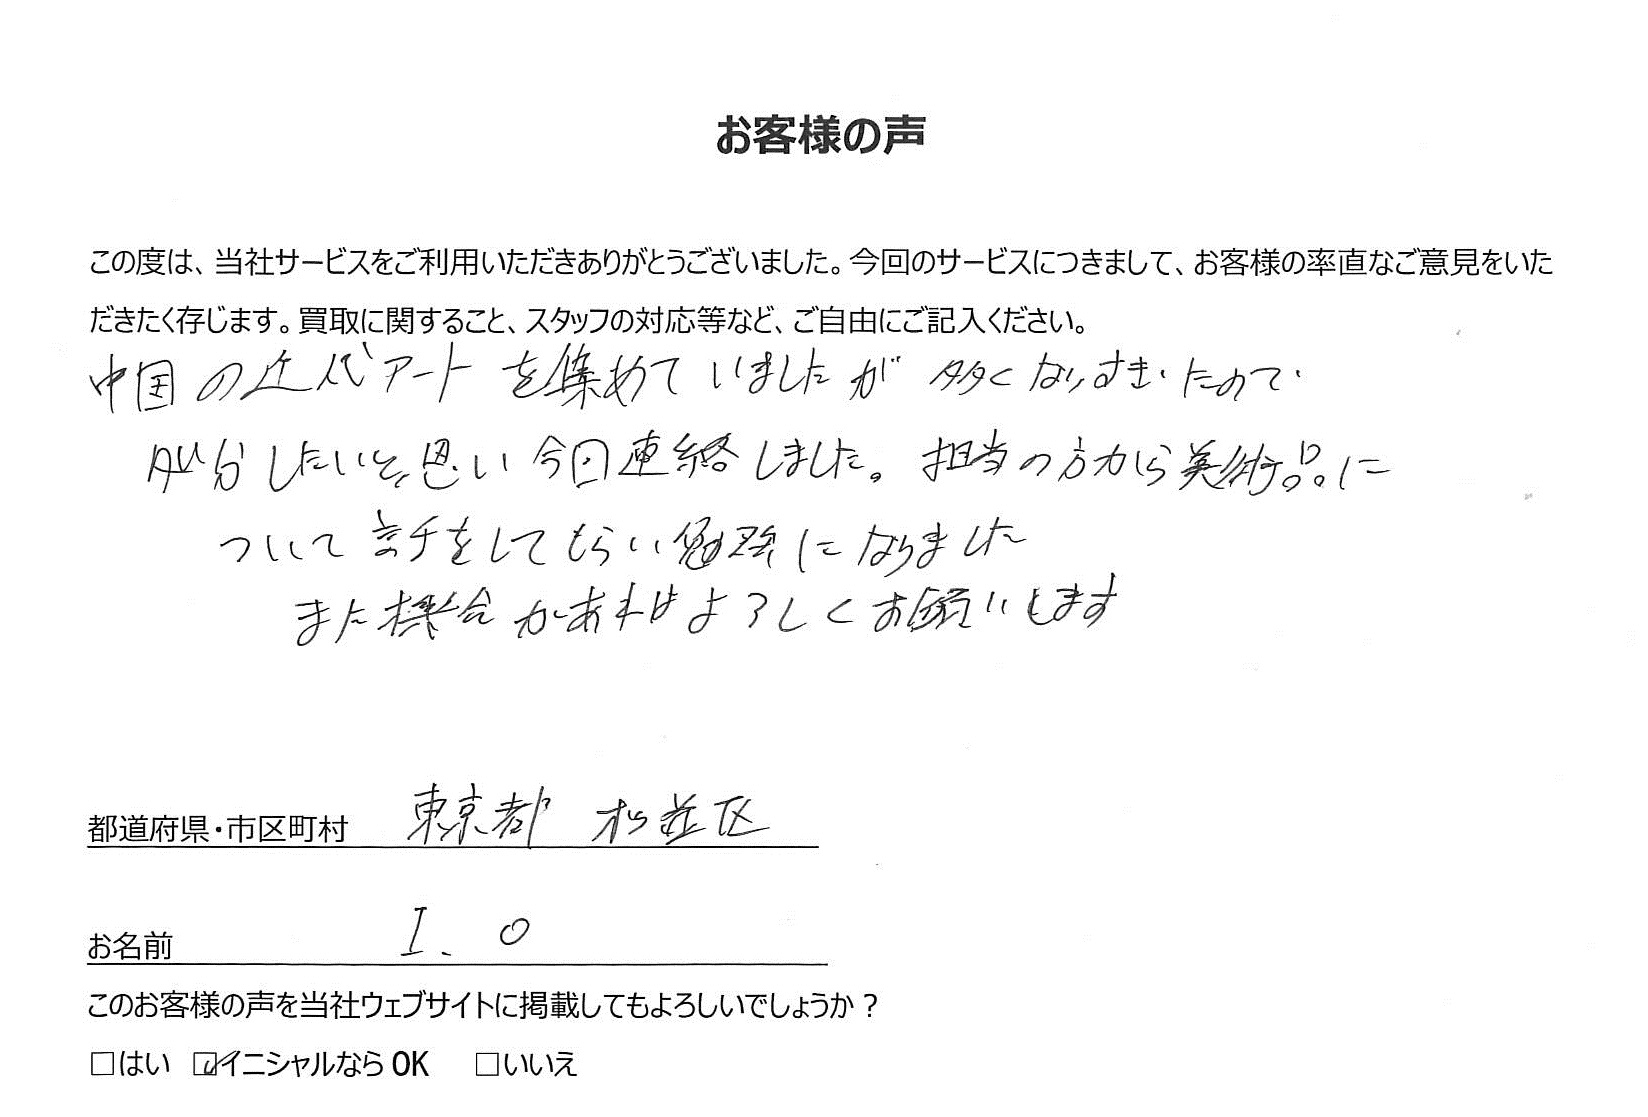 お客様の声
この度は、当社サービスをご利用いただきありがとうございました。今回のサービスにつきまして、お客様の率直なご意見をいた
だきたく存じます。買取に関すること、スタッフの対応等など、ご自由にご記入ください。
中国の近代アートを集めていましたが多くなりすぎたので
処分したいと思い今回連絡しました。担当の方から美術品に
ついて話をしてもらい勉強になりました
また機会があればよろしくお願いします
都道府県・市区町村 東京都 杉並区
お名前 I. O
このお客様の声を当社ウェブサイトに掲載してもよろしいでしょうか？
□はい ☑イニシャルなら OK □いいえ